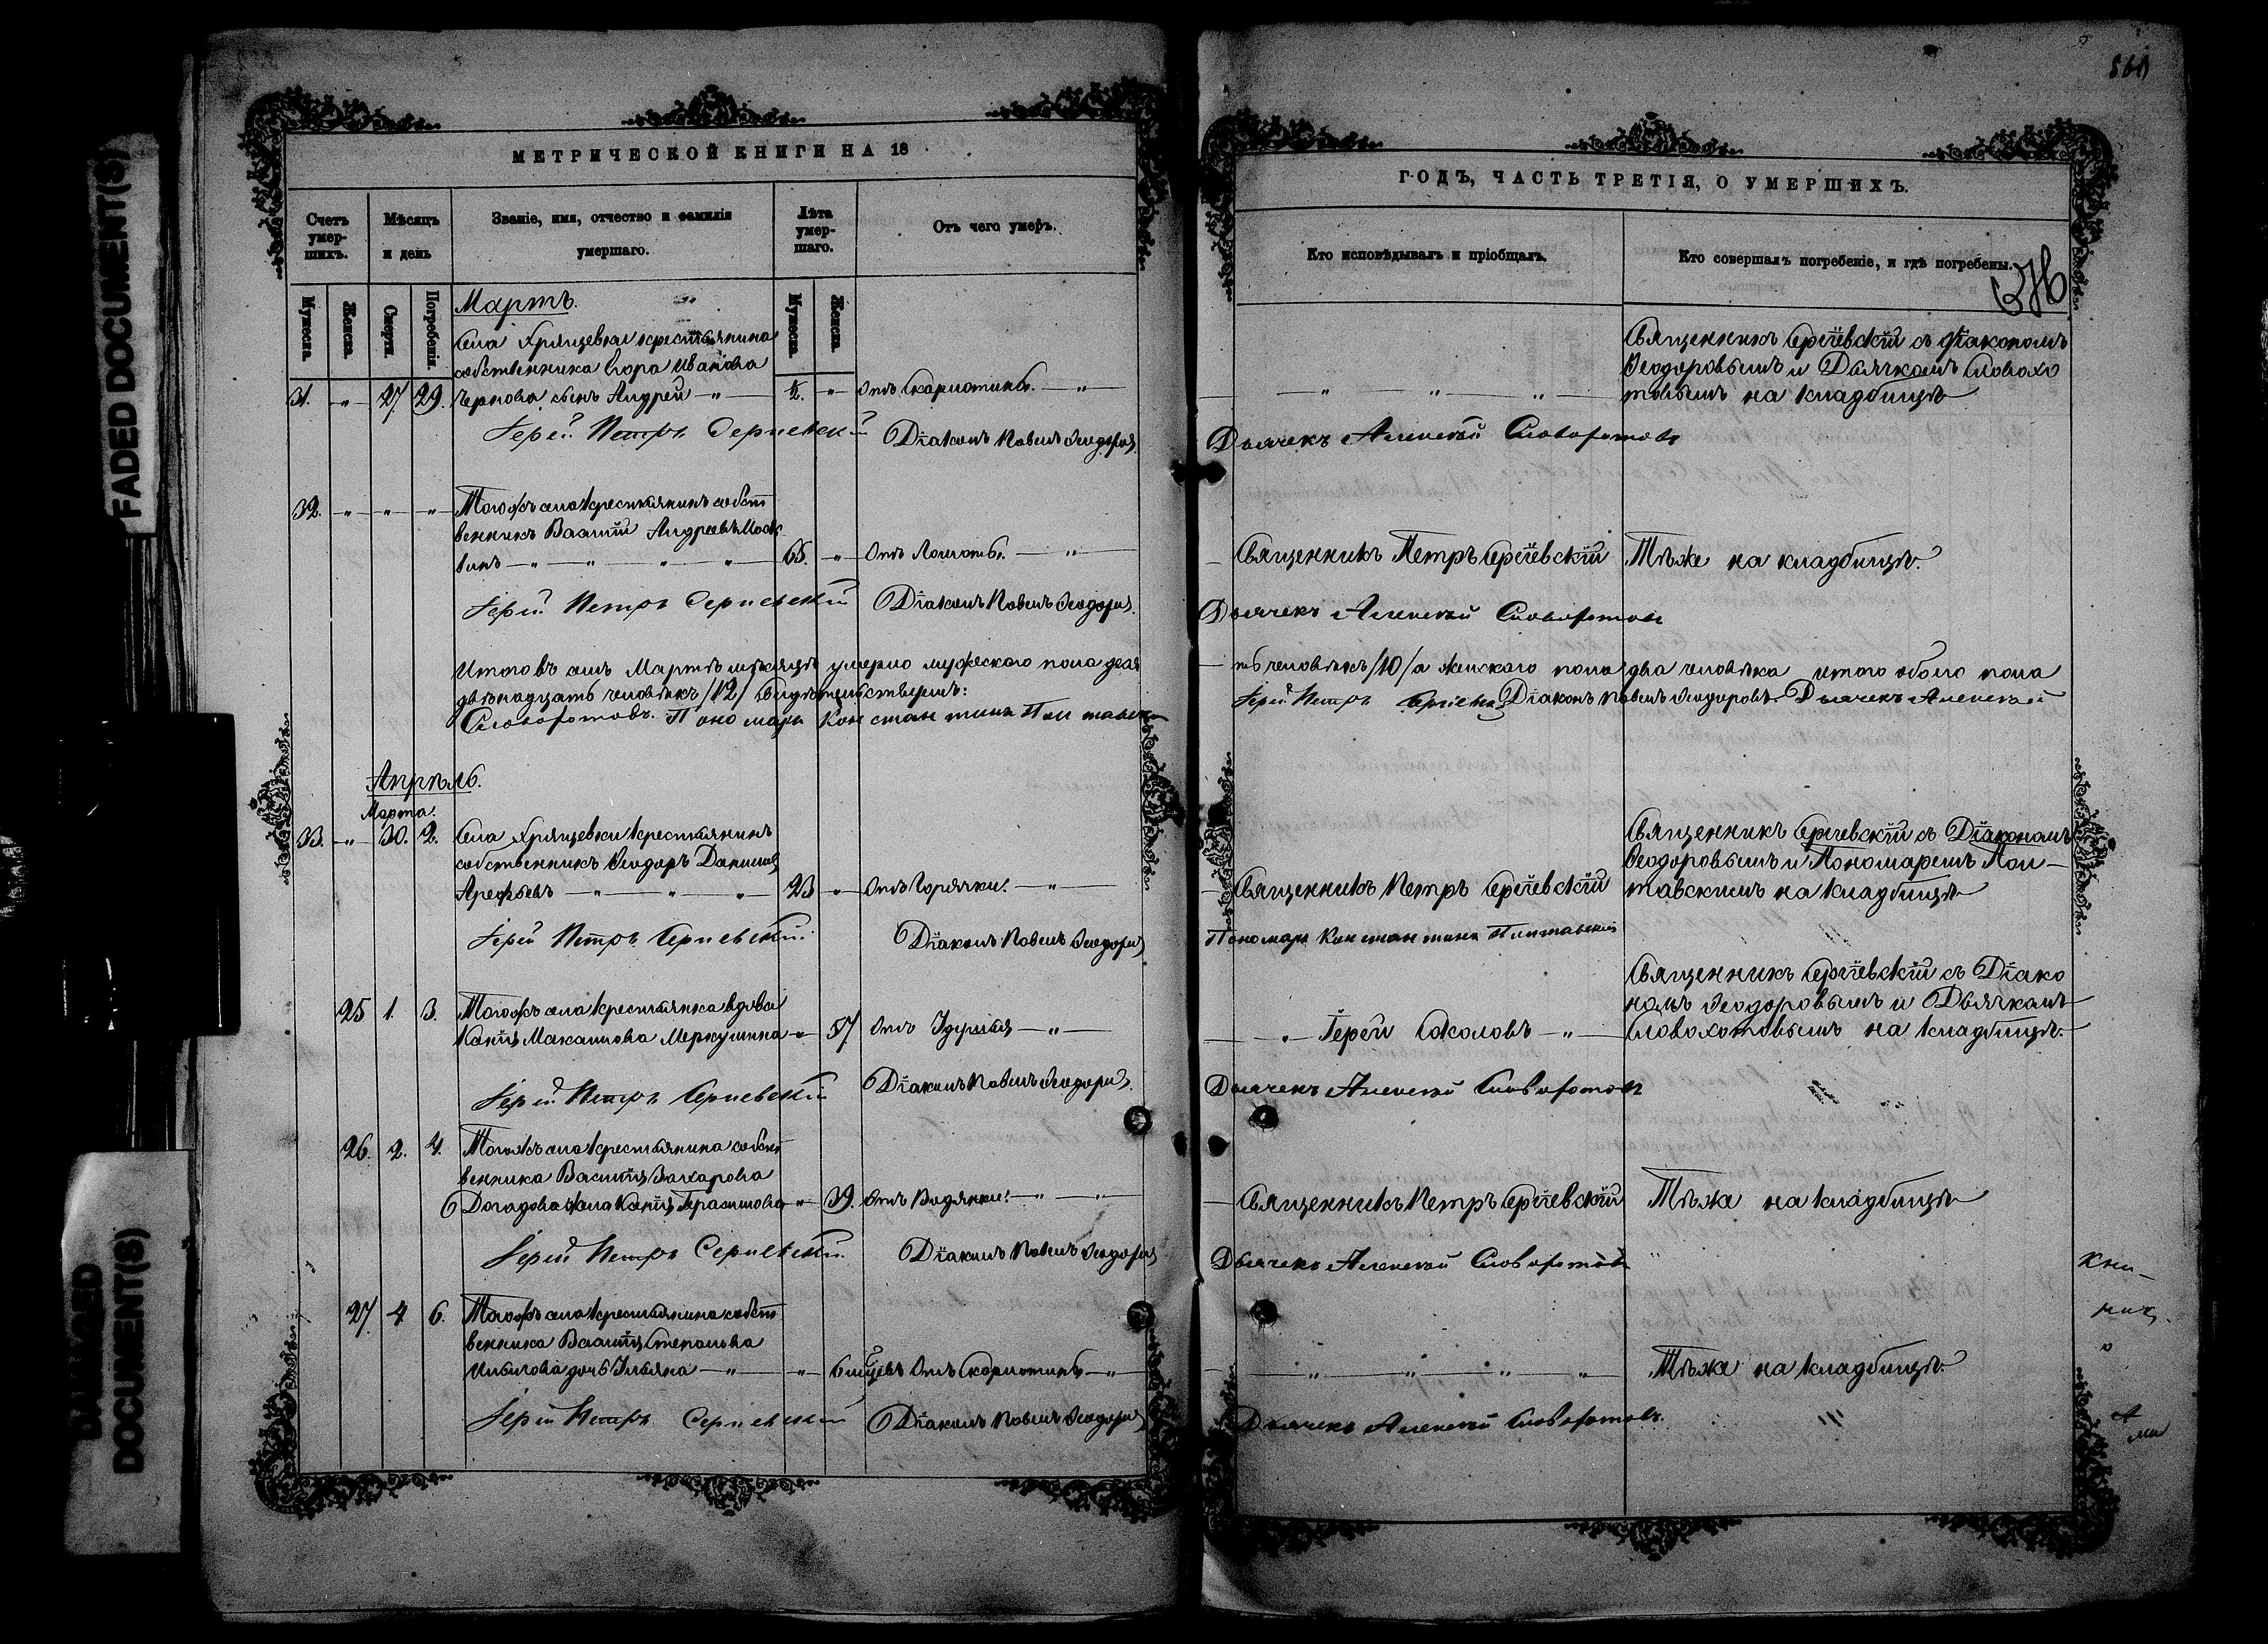 FADED DOCUMENT(S)
DOCUMENT(S)
МЕТРИЧЕСКОЙ КНИГИ НА 18
Счетъ умер- шихъ.
Мѣсяцъ и день
Званіе, имя, отчество и фамилія умершаго.
Лѣта умер- шаго.
Отъ чего умеръ.
Мужеска.
Женска.
Смерти.
Погребенія.
Мужеска.
Женска.
Мартъ.
Села Хрящевки крестьянина
собственника Егора Иванова
31. " 27. 29. Чернова сынъ Андрей " ½. " Отъ Скарлотины. "
Іерей Петръ Сергіевскій Діаконъ Павелъ Ѳеодоровъ
32. " " " Тогожъ села крестьянинъ собст
венникъ Василій Андреевъ Моск
винъ " " " " 65. " Отъ Ломоты. "
Іерей Петръ Сергіевскій Діаконъ Павелъ Ѳеодоровъ.
Итого въ семъ Мартѣ мѣсяцѣ умерло мужескаго пола деся
двѣнадцать человѣкъ /12/ Свидѣтельствуемъ:
Словохотовъ. Пономарь Константинъ Полтавскій
Апрѣль.
Марта.
33. " 30. 2. Села Хрящевки крестьянинъ
собственникъ Ѳеодоръ Даниловъ
Арефьевъ " " " 23 " Отъ Горячки. "
Іерей Петръ Сергіевскій Діаконъ Павелъ Ѳеодоровъ
25 1. 3. Тогожъ села крестьянка вдова
Макаилова Меркулина " 57 Отъ "
Іерей Петръ Сергіевскій Діаконъ Павелъ Ѳеодоровъ.
26. 2. 4. Тогожъ села крестьянина собст
венника Василія Захарова
Догадова жена Герасимова " 39. Отъ Водянки. " "
Іерей Петръ Сергіевскій Діаконъ Павелъ Ѳеодоровъ
27. 4 6. Тогожъ села крестьянина собст
венника Василія Степанова
дочь Ульяна " " 6 Отъ Скарлотины "
Іерей Петръ Сергіевскій Діаконъ Павелъ Ѳеодоровъ
ГОДЪ, ЧАСТЬ ТРЕТІЯ, О УМЕРШИХЪ.
Кто исповѣдывалъ и пріобщалъ.
Кто совершалъ погребеніе, и гдѣ погребены.
Священникъ Сергіевскій съ Діакономъ
Ѳеодоровымъ и Дьячкомъ Словохо
" " " товымъ на кладбищѣ
Дьячекъ Алексѣй Словохотовъ
Священникъ Петръ Сергіевскій Тѣже на кладбищѣ.
Дьячекъ Алексѣй Словохотовъ
ть человѣкъ /10/ а женскаго пола два человѣка итого обоего пола
Іерей Петръ Сергіевскій Діаконъ Павелъ Ѳеодоровъ. Дьячекъ Алексѣй
Священникъ Сергіевскій съ Діакономъ
Ѳеодоровымъ и Пономаремъ Пол-
Священникъ Петръ Сергіевскій тавскимъ на кладбищѣ
Пономарь Константинъ Полтавскій
Священникъ Сергіевскій съ Діако
номъ Ѳеодоровымъ и Дьячкомъ
" Іерей Соколовъ " Словохотовымъ на кладбищѣ.
Дьячекъ Алексѣй Словохотовъ
Священникъ Петръ Сергіевскій Тѣже на кладбищѣ
Дьячекъ Алексѣй Словохотовъ
" " " " Тѣже на кладбищѣ.
Дьячекъ Алексѣй Словохотовъ.